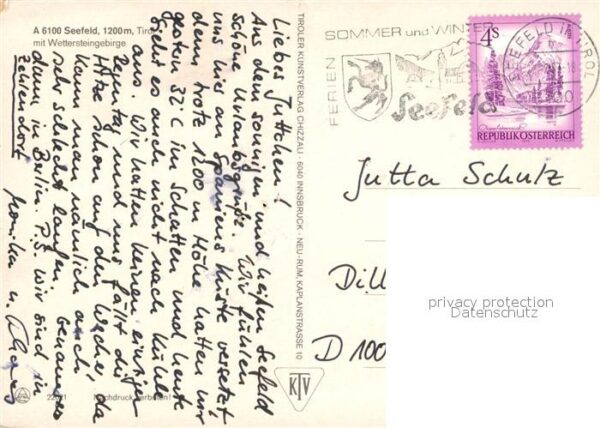 A 6100 Seefeld, 1200m, Tirol
mit Wettersteingebirge
Liebes Juttchen!
Aus dem sonnigen und heißen Seefeld
schöne Urlaubsgrüße. Wir fühlen
uns hier an Spaniens Küste versetzt
denn trotz 1200 m Höhe hatten wir
gestern 32°C im Schatten und heute
sieht es auch nicht nach Kühle
aus. Wir hatten keinen einzigen
Regentag und uns fällt die
Hitze schon auf den Wecker, da
kann man nämlich auch
sehr schlecht laufen. Genaueres
dann in Berlin. P.S. Wir sind in
Zehlendorf.
Monika u.
22021 Nachdruck verboten!
TIROLER KUNSTVERLAG CHIZZALI · 6040 INNSBRUCK - NEU-RUM, KAPLANSTRASSE 10
KTV
FERIEN
SOMMER und WINTER
Seefeld
SEEFELD IN TIROL
4S
REPUBLIK ÖSTERREICH
Jutta Schulz
Dill
D 100
privacy protection
Datenschutz